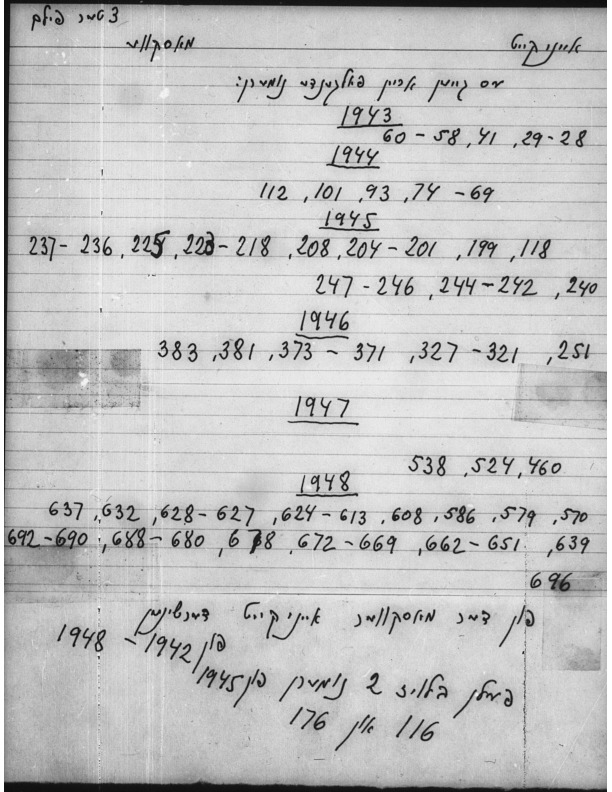 3טער פילם
אייניקייט מאסקווע
עס גייען אריין פאלגענדע נומערן:
1943
28-29, 41, 58-60
1944
69-74, 93, 101, 112
1945
118, 199, 201-204, 208, 218-223, 225, 236-237
240, 242-244, 246-247
1946
251, 321-327, 371-373, 381, 383
1947
460, 524, 538
1948
570, 579, 586, 608, 613-624, 627-628, 632, 637
639, 651-662, 669-672, 678, 680-688, 690-692
696
פון דער מאסקווער אייניקייט דערשינען
פון 1942 - 1948
פעלן בלויז 2 נומערן פון 1945
116 און 176